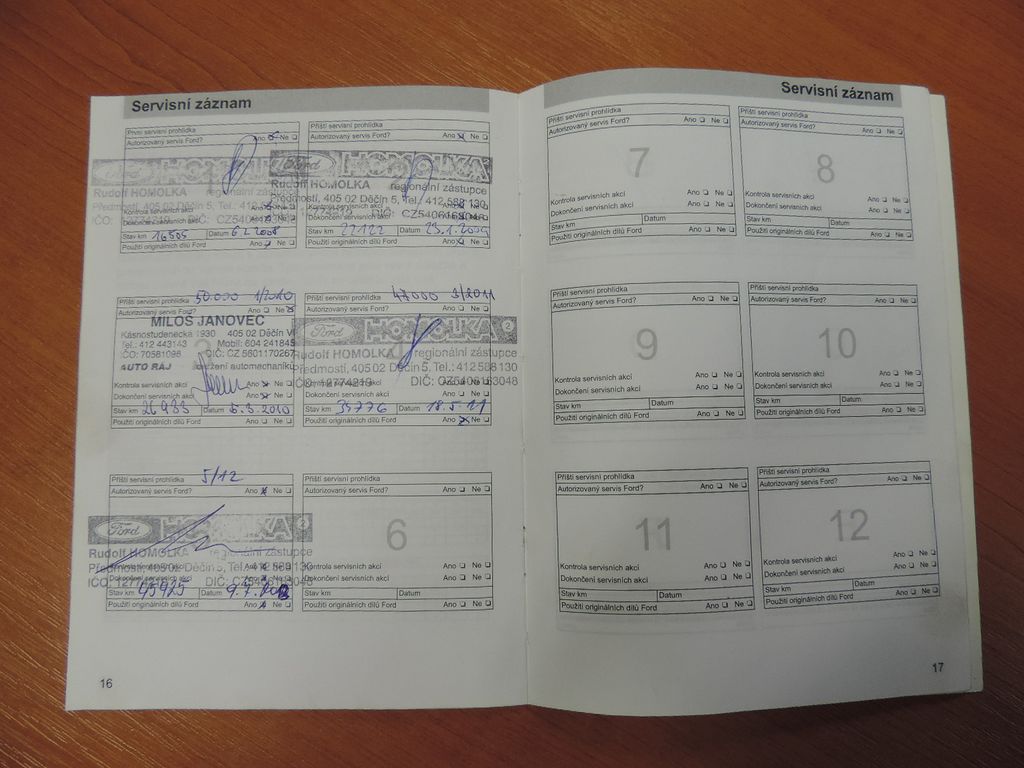 Servisní záznam
První servisní prohlídka
Autorizovaný servis Ford? Ano Ne
Rudolf HOMOLKA
Stav km 16505 Datum 6.2.2008
Použití originálních dílů Ford Ano Ne
Příští servisní prohlídka
Autorizovaný servis Ford? Ano Ne
Ford HOMOLKA
Rudolf HOMOLKA regionální zástupce
Předmostí, 405 02 Děčín 5, Tel.: 412 588 130
Stav km 22122 Datum 23.1.2009
Použití originálních dílů Ford Ano Ne
Příští servisní prohlídka 50.000 1/2010
Autorizovaný servis Ford? Ano Ne
MILOŠ JANOVEC
Kásnostudenecká 1930 405 02 Děčín V
Tel.: 412 443143 Mobil: 604 241845
IČO: 70581096 DIČ: CZ 5601170267
AUTO RÁJ
Kontrola servisních akcí Ano Ne
Dokončení servisních akcí Ano Ne
Stav km 26983 Datum 5.3.2010
Použití originálních dílů Ford Ano Ne
Příští servisní prohlídka 47000 3/2011
Autorizovaný servis Ford? Ano Ne
Ford HOMOLKA 2
Rudolf HOMOLKA regionální zástupce
Předmostí, 405 02 Děčín 5, Tel.: 412 588 130
Stav km 35776 Datum 18.5.11
Použití originálních dílů Ford Ano Ne
Příští servisní prohlídka 5/12
Autorizovaný servis Ford? Ano Ne
Ford HOMOLKA 2
Rudolf HOMOLKA regionální zástupce
Předmostí, 405 02 Děčín 5, Tel.: 412 588 130
Stav km 45925 Datum 9.7.2012
Použití originálních dílů Ford Ano Ne
Příští servisní prohlídka
Autorizovaný servis Ford? Ano Ne
6
Kontrola servisních akcí Ano Ne
Dokončení servisních akcí Ano Ne
Stav km Datum
Použití originálních dílů Ford Ano Ne
16
Servisní záznam
Příští servisní prohlídka
Autorizovaný servis Ford? Ano Ne
7
Kontrola servisních akcí Ano Ne
Dokončení servisních akcí Ano Ne
Stav km Datum
Použití originálních dílů Ford Ano Ne
Příští servisní prohlídka
Autorizovaný servis Ford? Ano Ne
8
Kontrola servisních akcí Ano Ne
Dokončení servisních akcí Ano Ne
Stav km Datum
Použití originálních dílů Ford Ano Ne
Příští servisní prohlídka
Autorizovaný servis Ford? Ano Ne
9
Kontrola servisních akcí Ano Ne
Dokončení servisních akcí Ano Ne
Stav km Datum
Použití originálních dílů Ford Ano Ne
Příští servisní prohlídka
Autorizovaný servis Ford? Ano Ne
10
Kontrola servisních akcí Ano Ne
Dokončení servisních akcí Ano Ne
Stav km Datum
Použití originálních dílů Ford Ano Ne
Příští servisní prohlídka
Autorizovaný servis Ford? Ano Ne
11
Kontrola servisních akcí Ano Ne
Dokončení servisních akcí Ano Ne
Stav km Datum
Použití originálních dílů Ford Ano Ne
Příští servisní prohlídka
Autorizovaný servis Ford? Ano Ne
12
Kontrola servisních akcí Ano Ne
Dokončení servisních akcí Ano Ne
Stav km Datum
Použití originálních dílů Ford Ano Ne
17